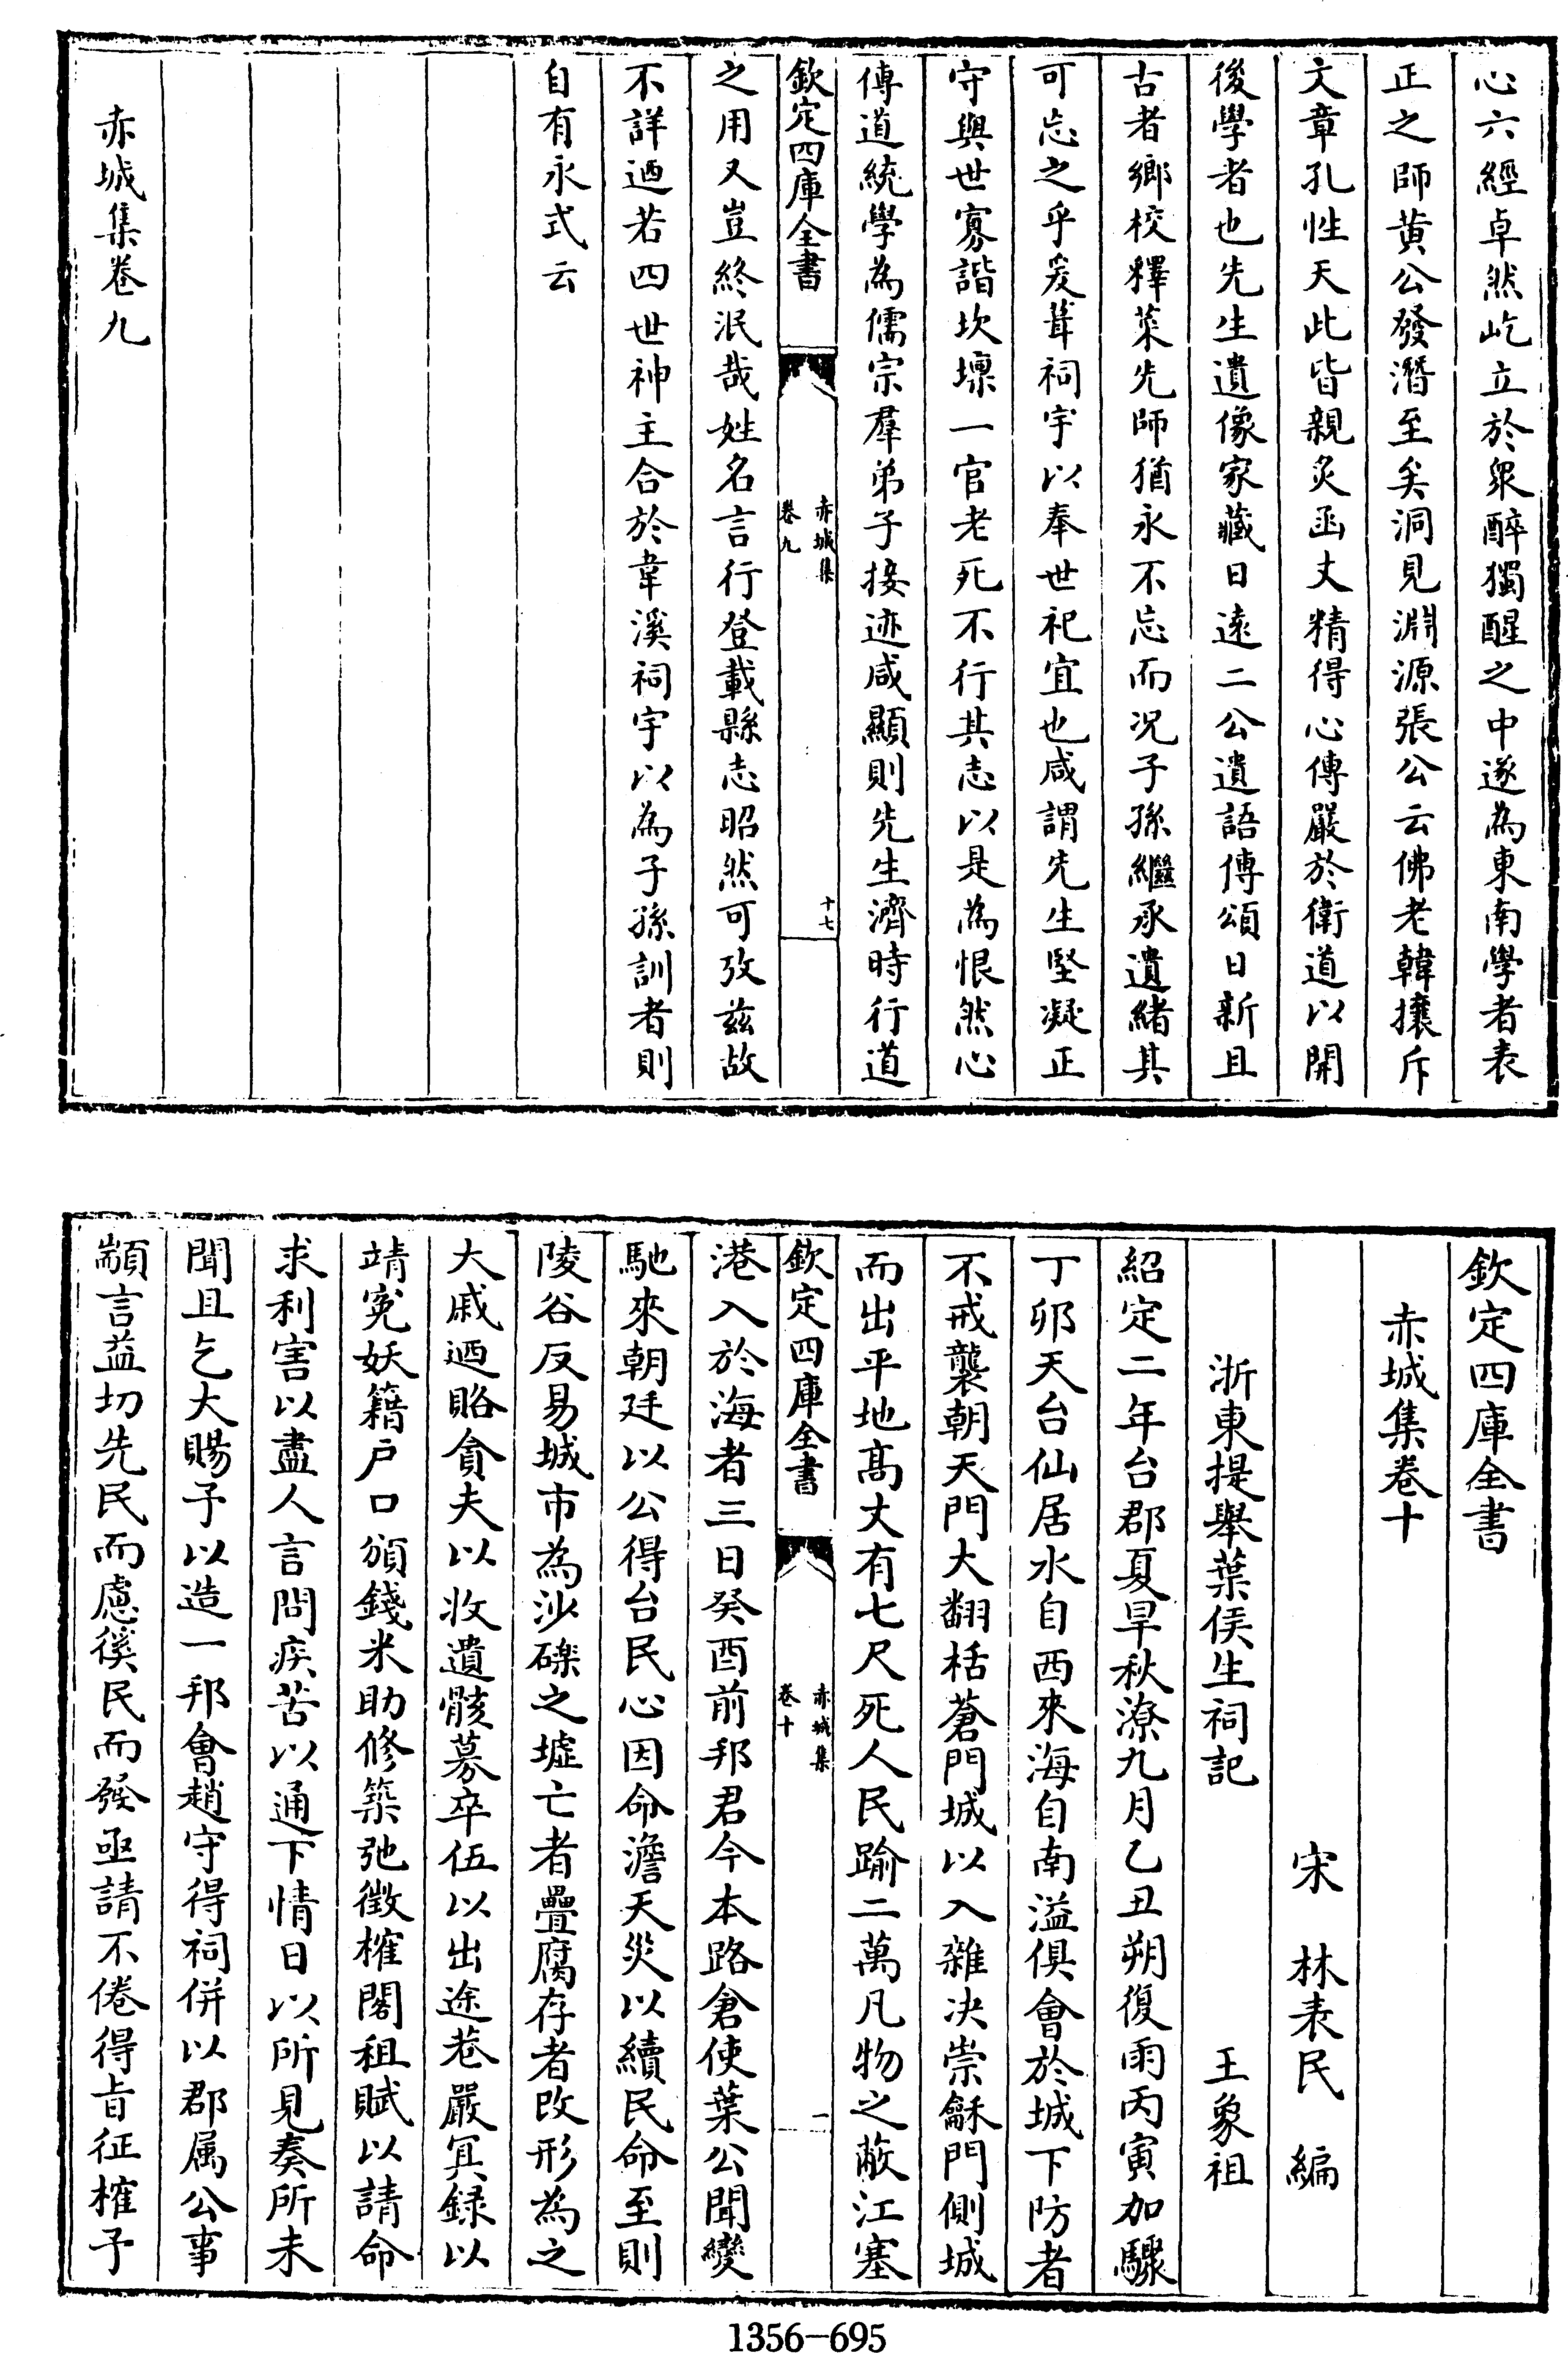 心六經卓然屹立於衆醉獨醒之中遂為東南學者表
正之師黄公發潛至矣洞見淵源張公云佛老韓攘斥
文章孔性天此皆親炙函丈精得心傳嚴於衛道以開
後學者也先生遺像家藏日遠二公遺語傳頌日新且
古者鄉校釋菜先師猶永不忘而况子孫繼承遺緒其
可忘之乎爰葺祠宇以奉世祀宜也咸謂先生堅凝正
守與世寡諧坎壈一官老死不行其志以是為恨然心
傳道統學為儒宗羣弟子接迹咸顯則先生濟時行道
欽定四庫全書
赤城集
卷九
十七
之用又豈終泯哉姓名言行登載縣志昭然可攷兹故
不詳廼若四世神主合於韋溪祠宇以為子孫訓者則
自有永式云
赤城集卷九
欽定四庫全書
赤城集卷十
宋 林表民 編
浙東提舉葉侯生祠記 王象祖
紹定二年台郡夏旱秋潦九月乙丑朔復雨丙寅加驟
丁卯天台仙居水自西來海自南溢俱會於城下防者
不戒襲朝天門大翻栝蒼門城以入雜决崇龢門側城
而出平地髙丈有七尺死人民踰二萬凡物之蔽江塞
欽定四庫全書
赤城集
卷十
一
港入於海者三日癸酉前邦君今本路倉使葉公聞變
馳來朝廷以公得台民心因命澹天災以續民命至則
陵谷反易城市為沙礫之墟亡者疊腐存者改形為之
大戚廼賂貪夫以收遺骸募卒伍以出途巷嚴冥録以
靖寃妖籍户口頒錢米助修築弛徵榷閣租賦以請命
求利害以盡人言問疾苦以通下情日以所見奏所未
聞且乞大賜予以造一邦會趙守得祠併以郡属公事
顓言益切先民而慮徯民而發亟請不倦得旨征榷子
1356-695